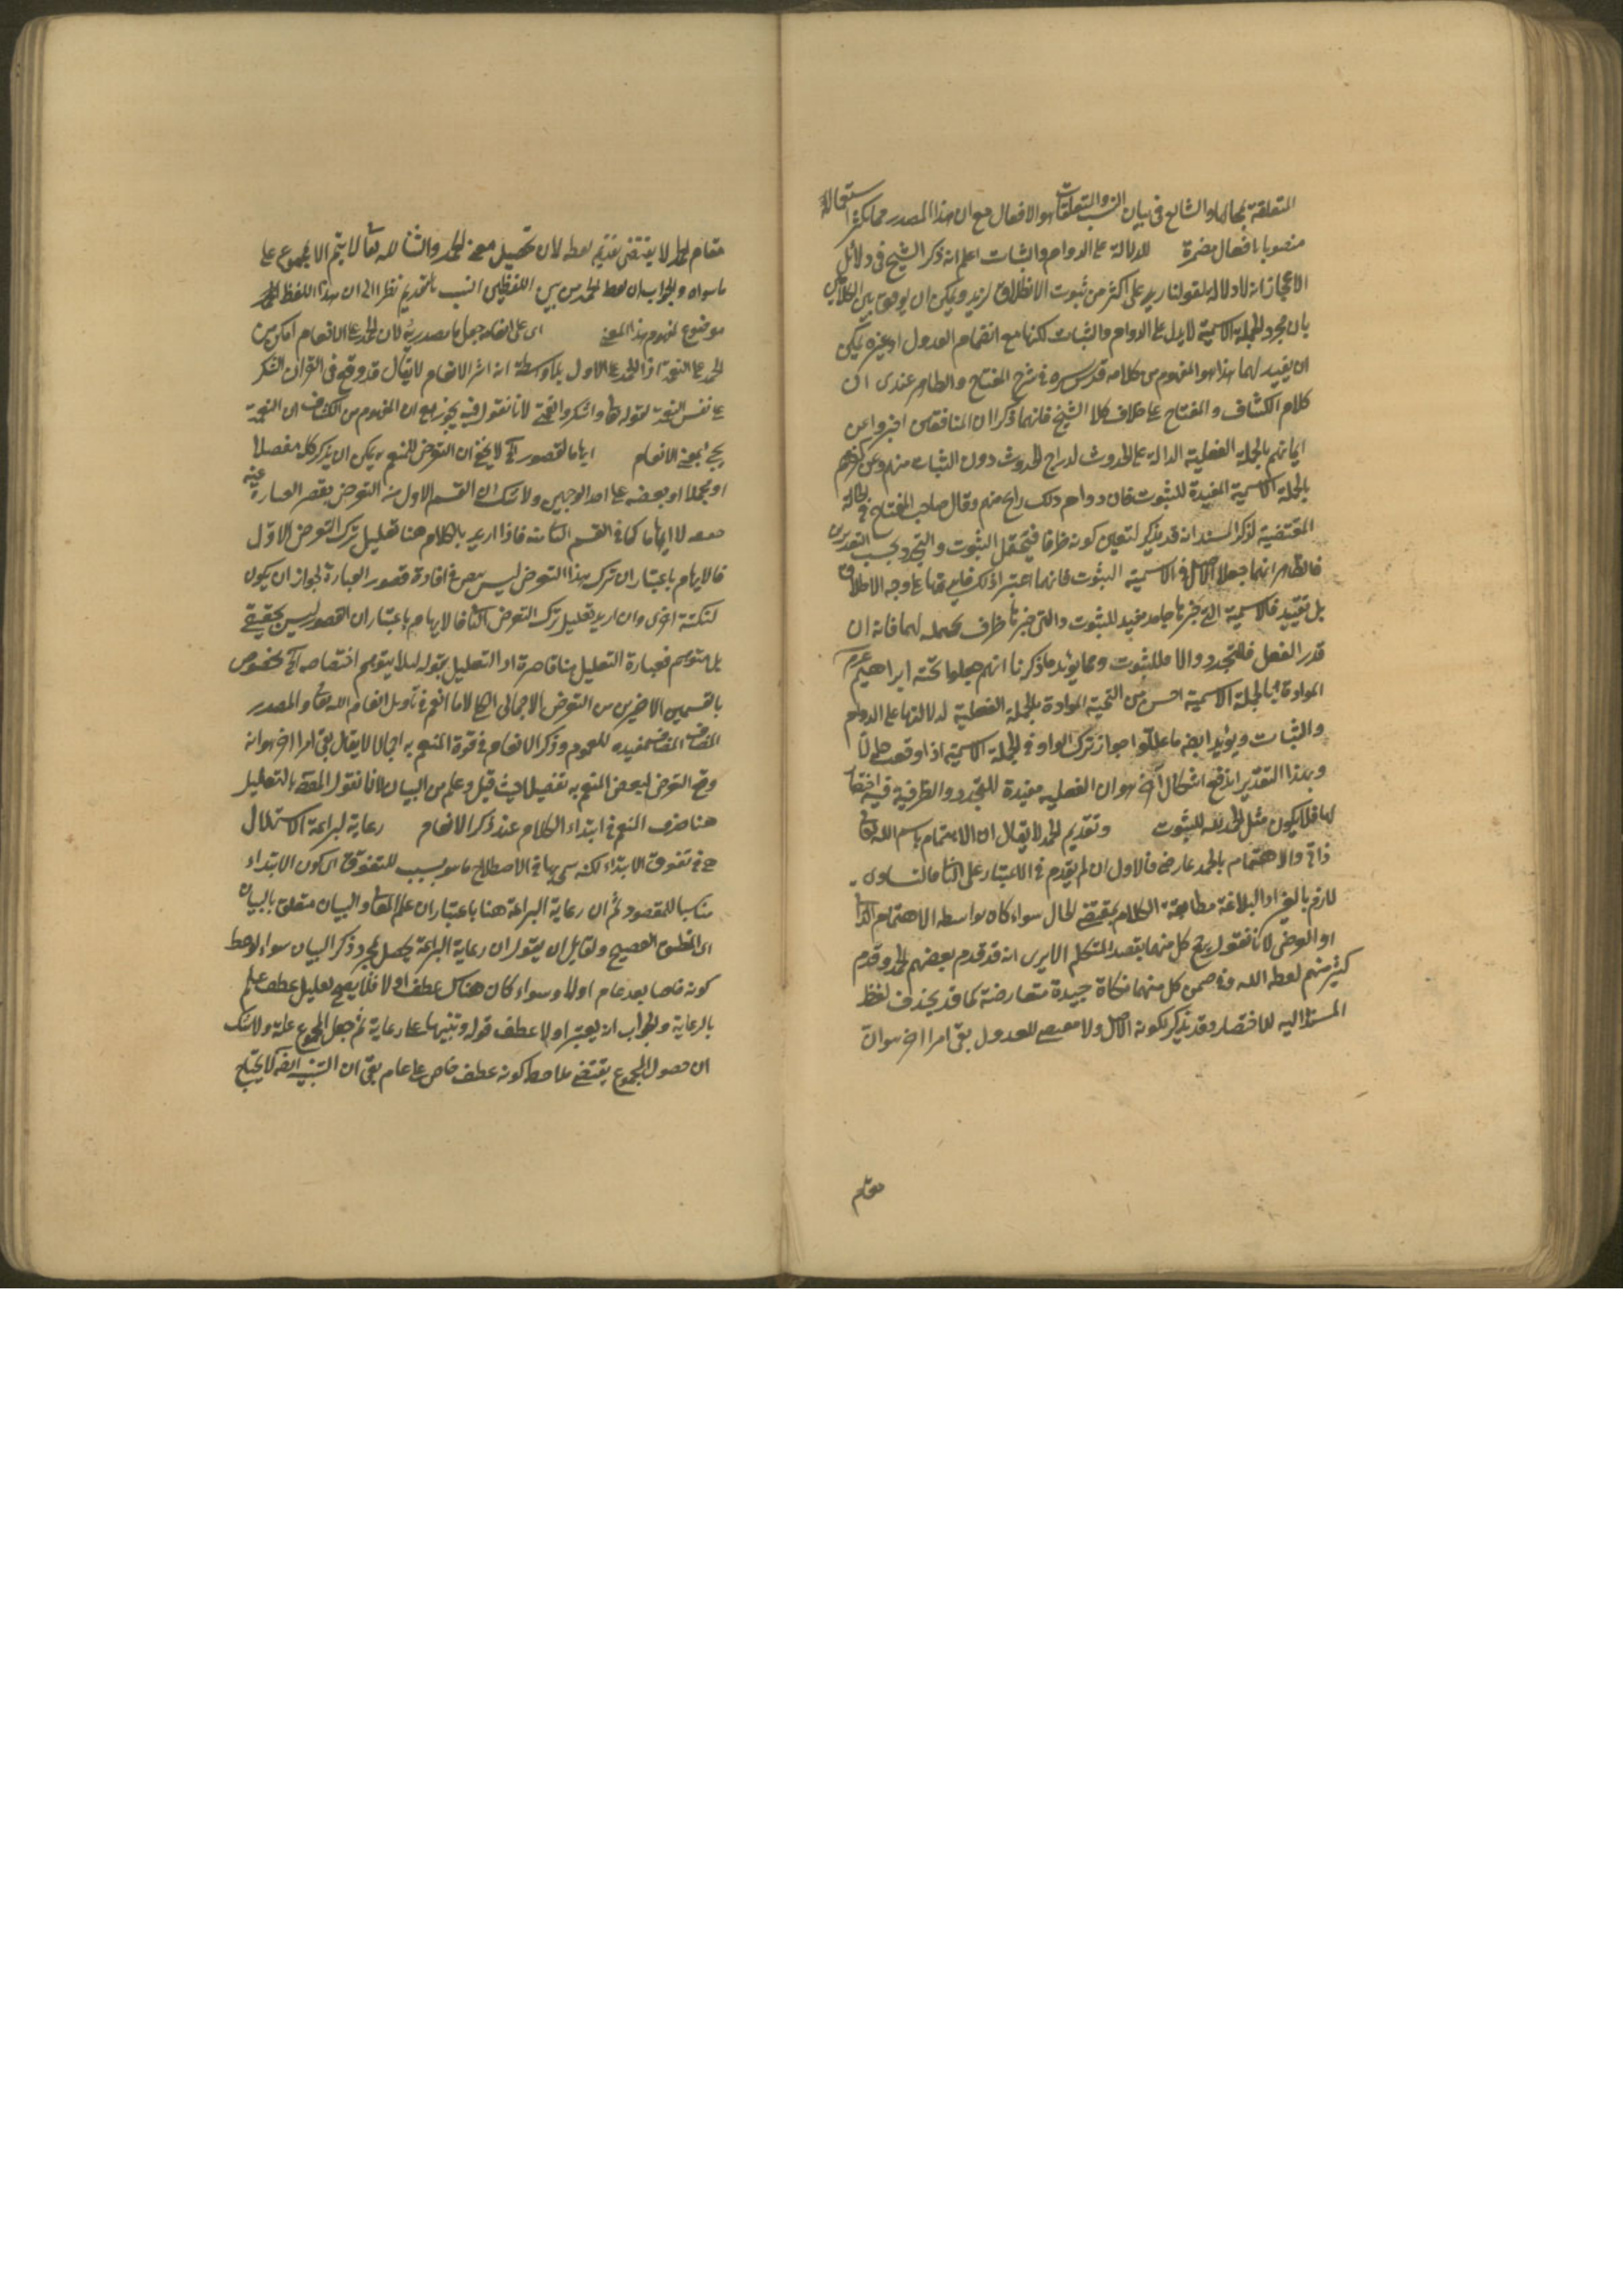 المتعلقة بمحالها والشايع في بيان النسب والتعلقات هو الافعال مع ان هذا المصدر مما كثر استعماله
منصوبا بافعال مضمرة للدلالة على الدوام والثبات اعلم انه ذكر الشيخ في دلائل
الاعجاز انه لا دلالة لقولنا زيد على اكثر من ثبوت الانطلاق لزيد ويمكن ان يوفق بين الكلامين
بان مجرد الجملة الاسمية لا يدل على الدوام والثبات لكنها مع انضمام العدول او غيره يمكن
ان يفيد لهما هذا هو المفهوم من كلامه قدس سره في شرح المفتاح والظاهر عندى ان
كلام الكشاف والمفتاح على خلاف كلام الشيخ فانهما ذكرا ان المنافقين اخبروا عن
ايمانهم بالجملة الفعلية الدالة على الحدوث دون الثبات منهم وعن كفرهم
بالجملة الاسمية المفيدة للثبوت فان دوام ذلك رايج منهم وقال صاحب المفتاح في الحالة
المقتضية لذكر المسند انه قد يذكر لتعين كونه ظرفا فيحتمل الثبوت والتجدد بحسب التقديرين
فالظاهر انهما جعلا الاصل في الاسمية الثبوت فانهما اعتبرا ذلك على وجه الاطلاق
بل تقييد فالاسمية التي خبرها جامد مفيد للثبوت والتي خبرها ظرف محتملة لهما فانه ان
قدر الفعل فللتجدد والا فللثبوت ومما يؤيد ما ذكرنا انهم جعلوا تحية ابراهيم
الموادة بالجملة الاسمية احسن من التحية الموادة بالجملة الفعلية لدلالتها على الدوام
والثبات ويؤيد ايضا ما عللوا جواز ترك الواو في الجملة الاسمية اذا وقعت حالا
وبهذا التقدير اندفع اشكال آخر هو ان الفعلية مفيدة للتجدد والظرفية
لها فلا يكون مثل الحمد لله للثبوت وتقديم الحمد لا يقال ان الاهتمام باسم الله تعالى
ذاتي والاهتمام بالحمد عارضي فالاول ان لم يقدم في الاعتبار على الثاني فالتساوى
لازم بالغير اذ البلاغة مطابقة الكلام بمقتضى الحال سواء كان بواسطة الاهتمام الذاتي
او العرضي لانا نقول يرجح كل منهما بقصد المتكلم الا يرى انه قد قدم بعضهم الحمد وقدم
كثير منهم لفظ الله وفي ضمن كل منهما نكات جيدة متعارضة كما قد يحذف لفظ
المسند اليه للاختصار وقد يذكر لكونه الاصل ولا مقتضى للعدول بقى امر آخر هو ان
مقام
مقام الحمد لا يقتضى تقديم لفظه لان تحصيل معنى الحمد والثناء لله تعالى لا يتم الا بمجموع على
ما سواه والجواب ان لفظ الحمد من بين اللفظين انسب بالتقديم نظرا الى ان هذا اللفظ
موضوع لمفهوم هذا المعنى اى على انعامه جعل ما مصدرية لان الحمد على الانعام امكن من
الحمد على النعمة اذ الحمد على الاول بلا واسطة انه اثر الانعام لا يقال قد وقع في القرآن الشكر
على نفس النعمة لقوله تعالى واشكروا لانا نقول فيه تجوز مع ان المفهوم من الكشاف ان النعمة
يجيء بمعنى الانعام ايهاما لقصور الخ لا يخفى ان التعرض للمنعم به يمكن ان يذكر كله مفصلا
او مجملا او بعضه على احد الوجهين ولا شك ان القسم الاول منه التعرض يقصر العبارة عنه
لا ايهاما كما في القسم الثاني منه فاذا اريد بالكلام هنا تعليل ترك التعرض الاول
فالايهام باعتبار ان ترك هذا التعرض ليس بنص في افادة قصور العبارة لجواز ان يكون
لنكتة اخرى وان اريد تعليل ترك التعرض الثاني فالايهام باعتبار ان القصور ليس بحقيقي
بل متوهم فعبارة التعليل هنا قاصرة او التعليل بقوله لئلا يتوهم اختصاصه الخ مخصوص
بالقسمين الاخيرين من التعرض الاجمالي لان ما انعم في تأويل انعام الله تعالى والمصدر
المضاف مفيد للعموم وذكر الانعام في قوة المنعم به اجمالا لا يقال بقى امر آخر هو انه
وقع التعرض لبعض المنعم به تفصيلا حيث قيل وعلم من البيان لانا نقول المقصود بالتعليل
هنا حذف المنعم في ابتداء الكلام عند ذكر الانعام رعاية لبراعة الاستهلال
هي تفوق الابتداء لكنه سمى بها في الاصطلاح ما هو سبب للتفوق اى كون الابتداء
مناسبا للمقصود ثم ان رعاية البراعة هنا باعتبار ان علم المعاني والبيان متعلق بالبيان
اى المنطق الفصيح ولقايل ان يقول ان رعاية البراعة يحصل بمجرد ذكر البيان سواء لوحظ
كونه خاصا بعد عام اولا وسواء كان هناك عطف اولا فلا يصح تعليل عطف علم
بالرعاية والجواب انه يعتبر اولا عطف قوله وتنبيها على رعاية ثم جعل المجموع علة ولا شك
ان حصول المجموع يقتضى ملاحظة كونه عطف خاص على عام بقى ان التنبيه ايضا لا يحتاج